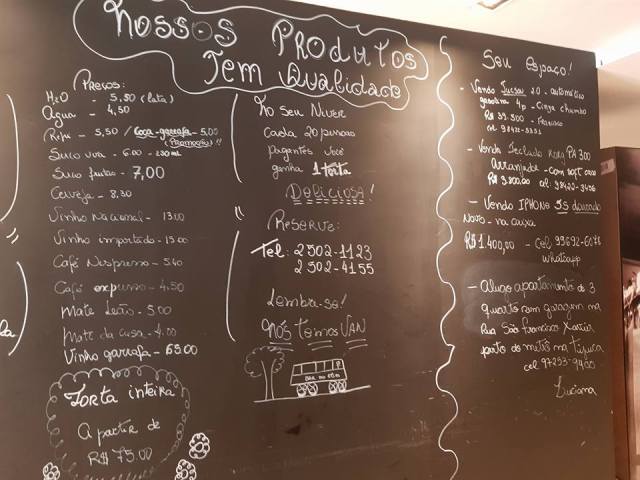 Nossos Produtos
Tem Qualidade
Preços:
H2O - 5,50 (lata)
Água - 4,50
Refri - 5,50 / Coca-garrafa - 5,00
(Promoção)!!
Suco uva - 6.00 -
Suco frutas - 7,00
Cerveja - 8,30
Vinho Nacional - 13.00
Vinho importado - 15.00
Café Nespresso - 5.40
Café expresso - 4.50
Mate Leão - 5.00
Mate da casa - 4.00
Vinho garrafa - 65.00
Torta inteira
A partir de
R$ 75.00
No seu Niver
Cada 20 pessoas
pagantes você
ganha 1 torta
Deliciosa!
Reserve:
Tel: 2502-1123
2502-4155
Lembre-se!
Nós temos VAN
Seu espaço!
- Vendo Tucson 2.0 - automático
gasolina 4p - Cinza chumbo
R$ 39.500 - Francisco
cel
- Vendo Teclado Korg PA 300
Arranjador - com soft case
R$ 3.800,00 cel
- Vendo IPHONE 5s dourado
Novo - na caixa
R$ 1.400,00 - Cel 99692-6078
Whatsapp
- Alugo apartamento de 3
quartos com garagem na
Rua São Francisco Xavier
perto do metrô na Tijuca
cel 97233-9400
Luciana